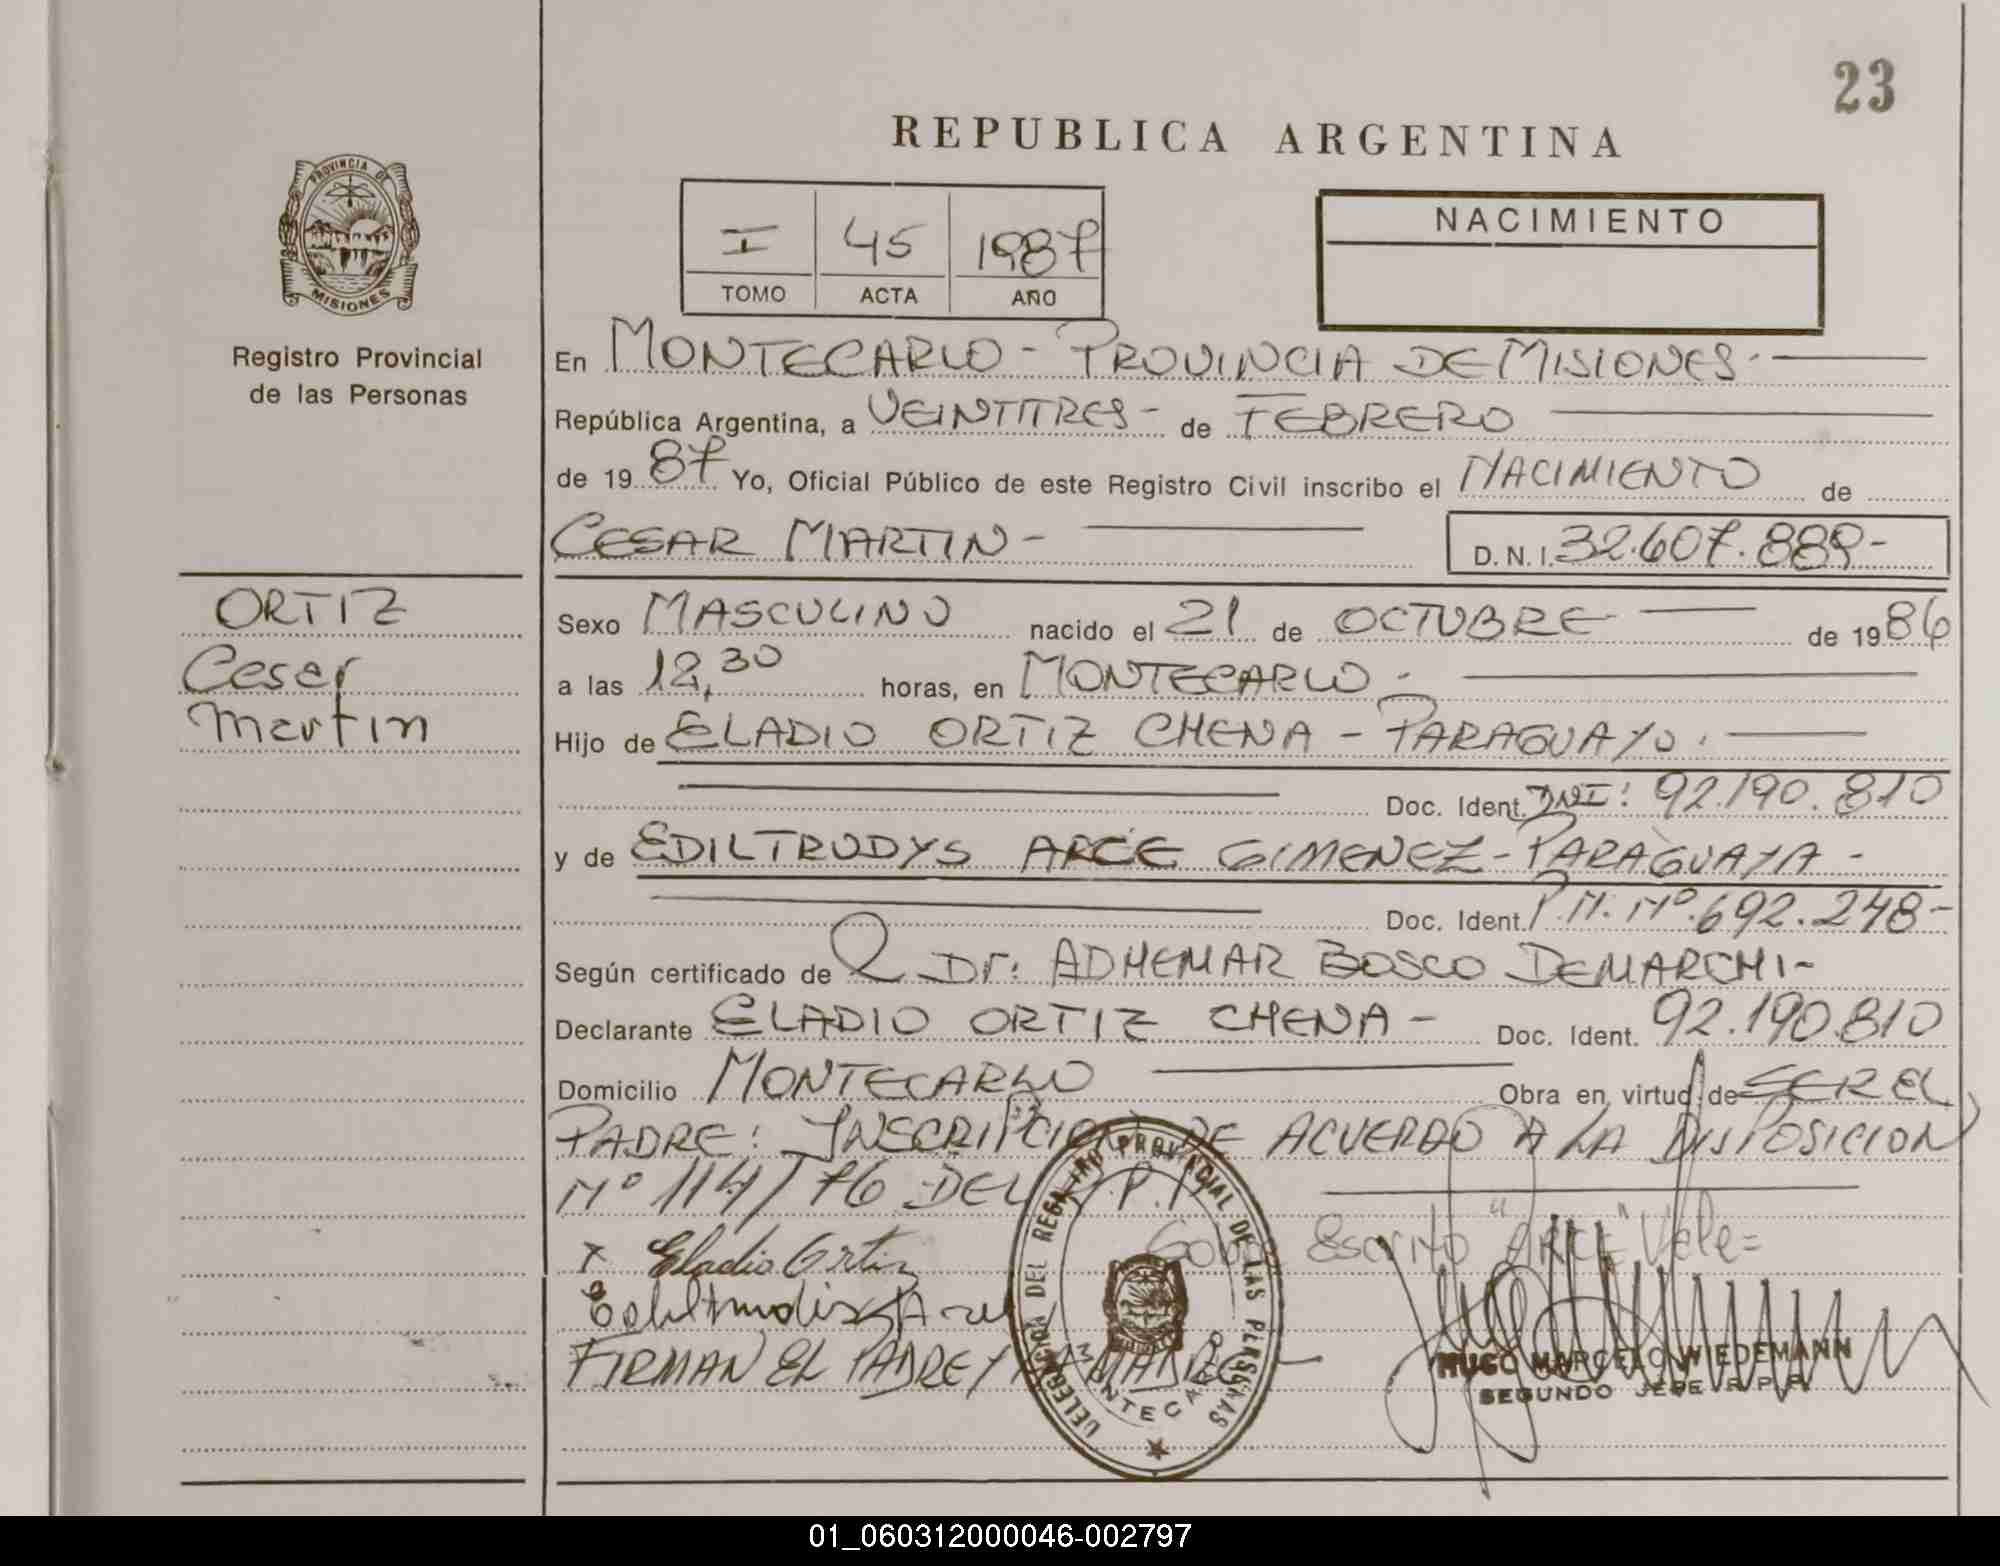 23
REPUBLICA ARGENTINA
PROVINCIA DE
MISIONES
Registro Provincial
de las Personas
I 45 1987
TOMO ACTA AÑO
NACIMIENTO
En MONTECARLO - PROVINCIA DE MISIONES.
República Argentina, a VEINTITRES - de FEBRERO
de 1987 Yo, Oficial Público de este Registro Civil inscribo el NACIMIENTO de
CESAR MARTIN - D.N.I. 32.607.889-
ORTIZ
Cesar
Martin
Sexo MASCULINO nacido el 21 de OCTUBRE de 1986
a las 12,30 horas, en MONTECARLO.-
Hijo de ELADIO ORTIZ CHENA - PARAGUAYO.
Doc. Ident. DNI: 92.190.810
y de EDILTRUDYS ARCE GIMENEZ - PARAGUAYA -
Doc. Ident. Nº 692.248-
Según certificado de Dr. ADHEMAR BOSCO DEMARCHI-
Declarante ELADIO ORTIZ CHENA - Doc. Ident. 92.190.810
Domicilio MONTECARLO Obra en virtud de SER EL
PADRE: INSCRIPCION DE ACUERDO A LA DISPOSICION
Nº 114/76 DEL R.P.P.
Sobre Escrito "ARCE" Vale=
x Eladio Ortiz
FIRMAN EL PADRE Y LA MADRE
DELEGACION DEL REGISTRO PROVINCIAL DE LAS PERSONAS
MONTECARLO
HUGO MARCELO WIEDEMANN
SEGUNDO JEFE R.P.P.
01_060312000046-002797